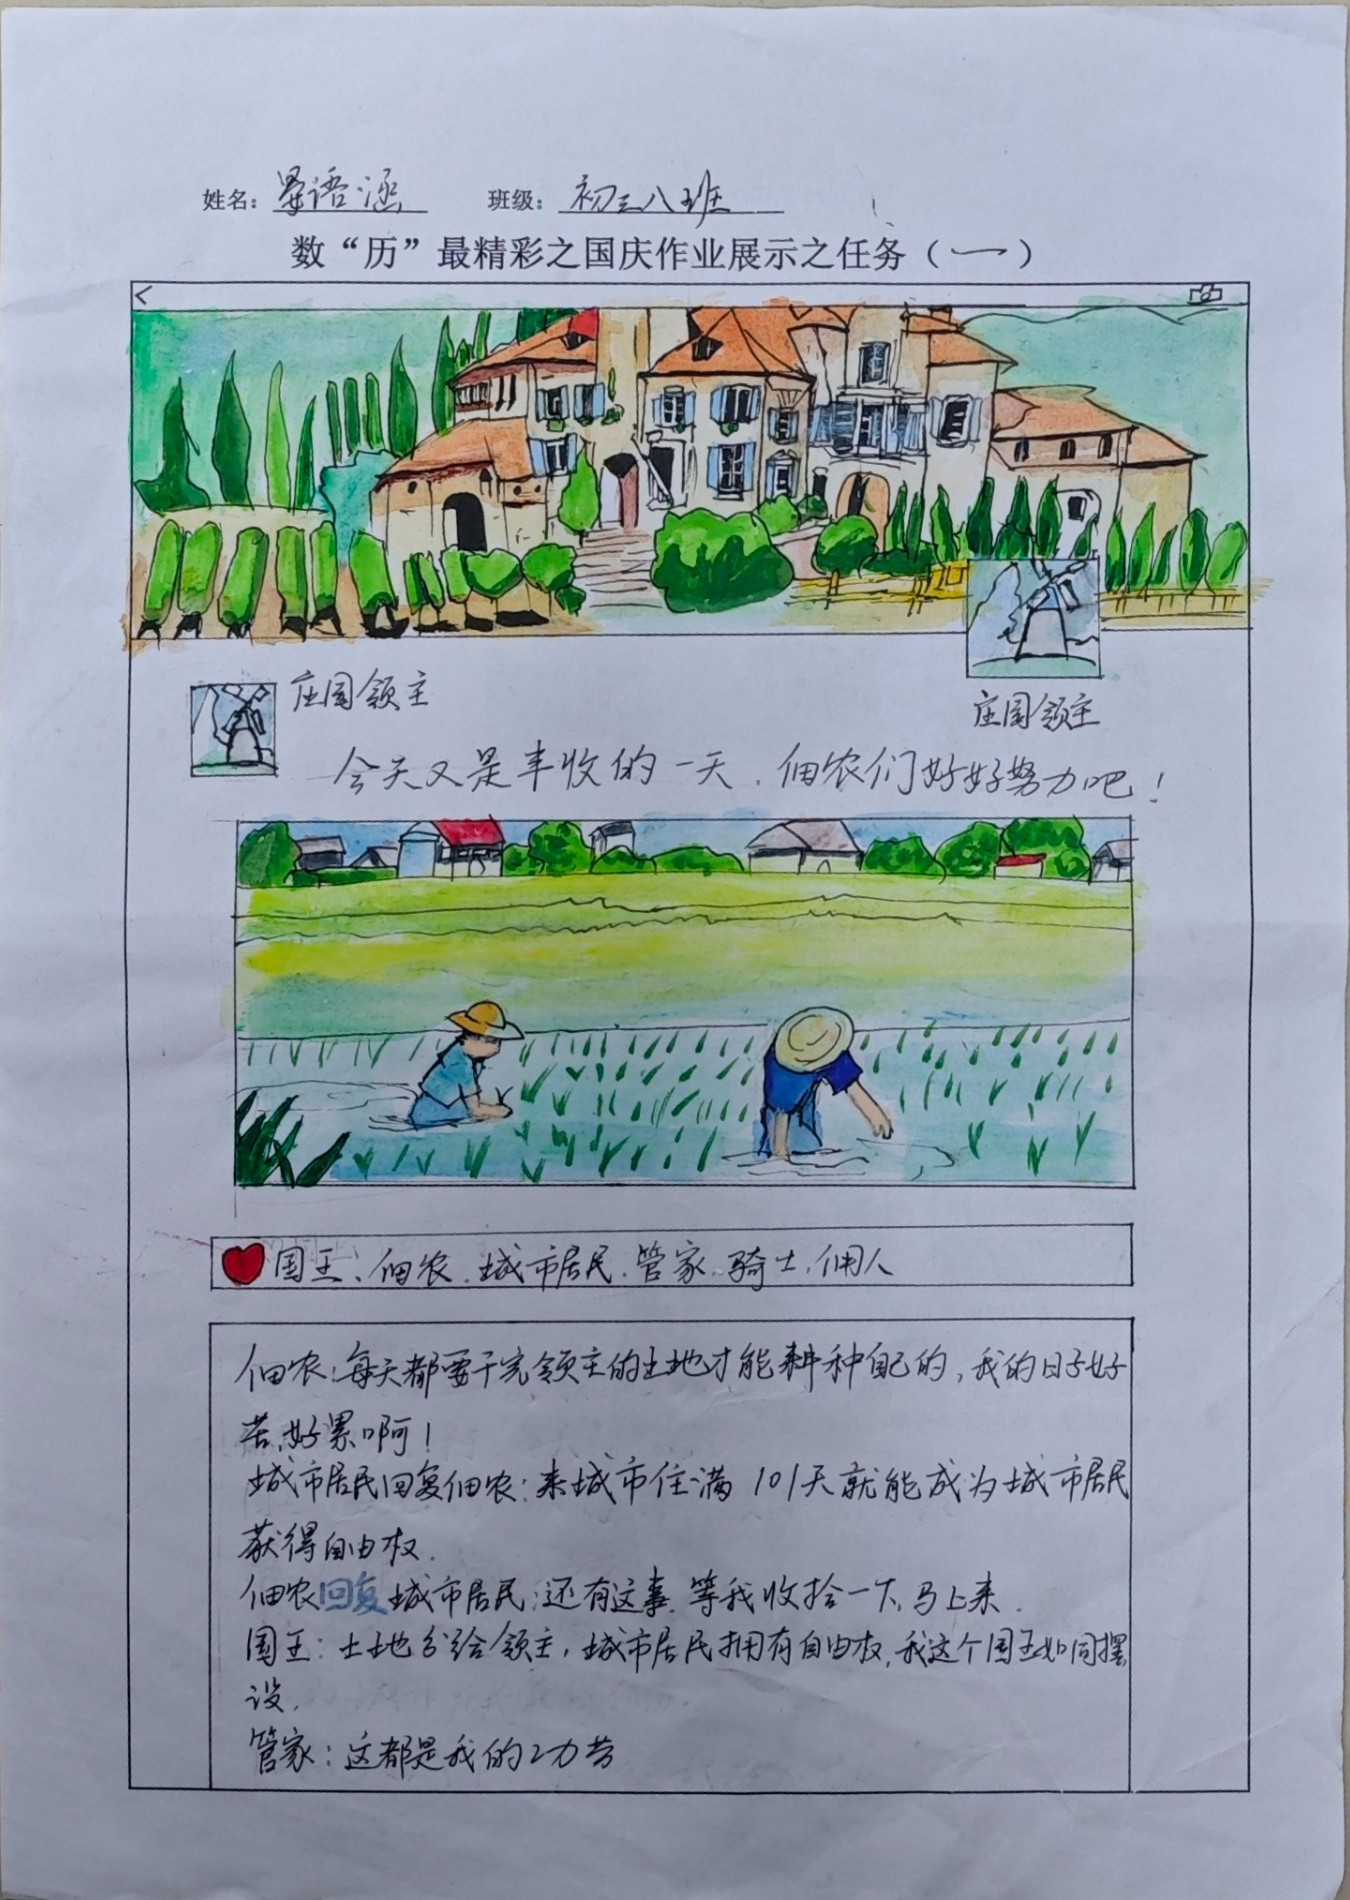 姓名：晏语涵 班级：初三八班
数“历”最精彩之国庆作业展示之任务（一）
庄园领主
庄园领主
今天又是丰收的一天，佃农们好好努力吧！
国王、佃农、城市居民、管家、骑士、佣人
佃农：每天都要干完领主的土地才能耕种自己的，我的日子好
苦、好累啊！
城市居民回复佃农：来城市住满101天就能成为城市居民
获得自由权.
佃农回复城市居民：还有这事，等我收拾一下，马上来.
国王：土地分给领主，城市居民拥有自由权，我这个国王如同摆
设.
管家：这都是我的功劳